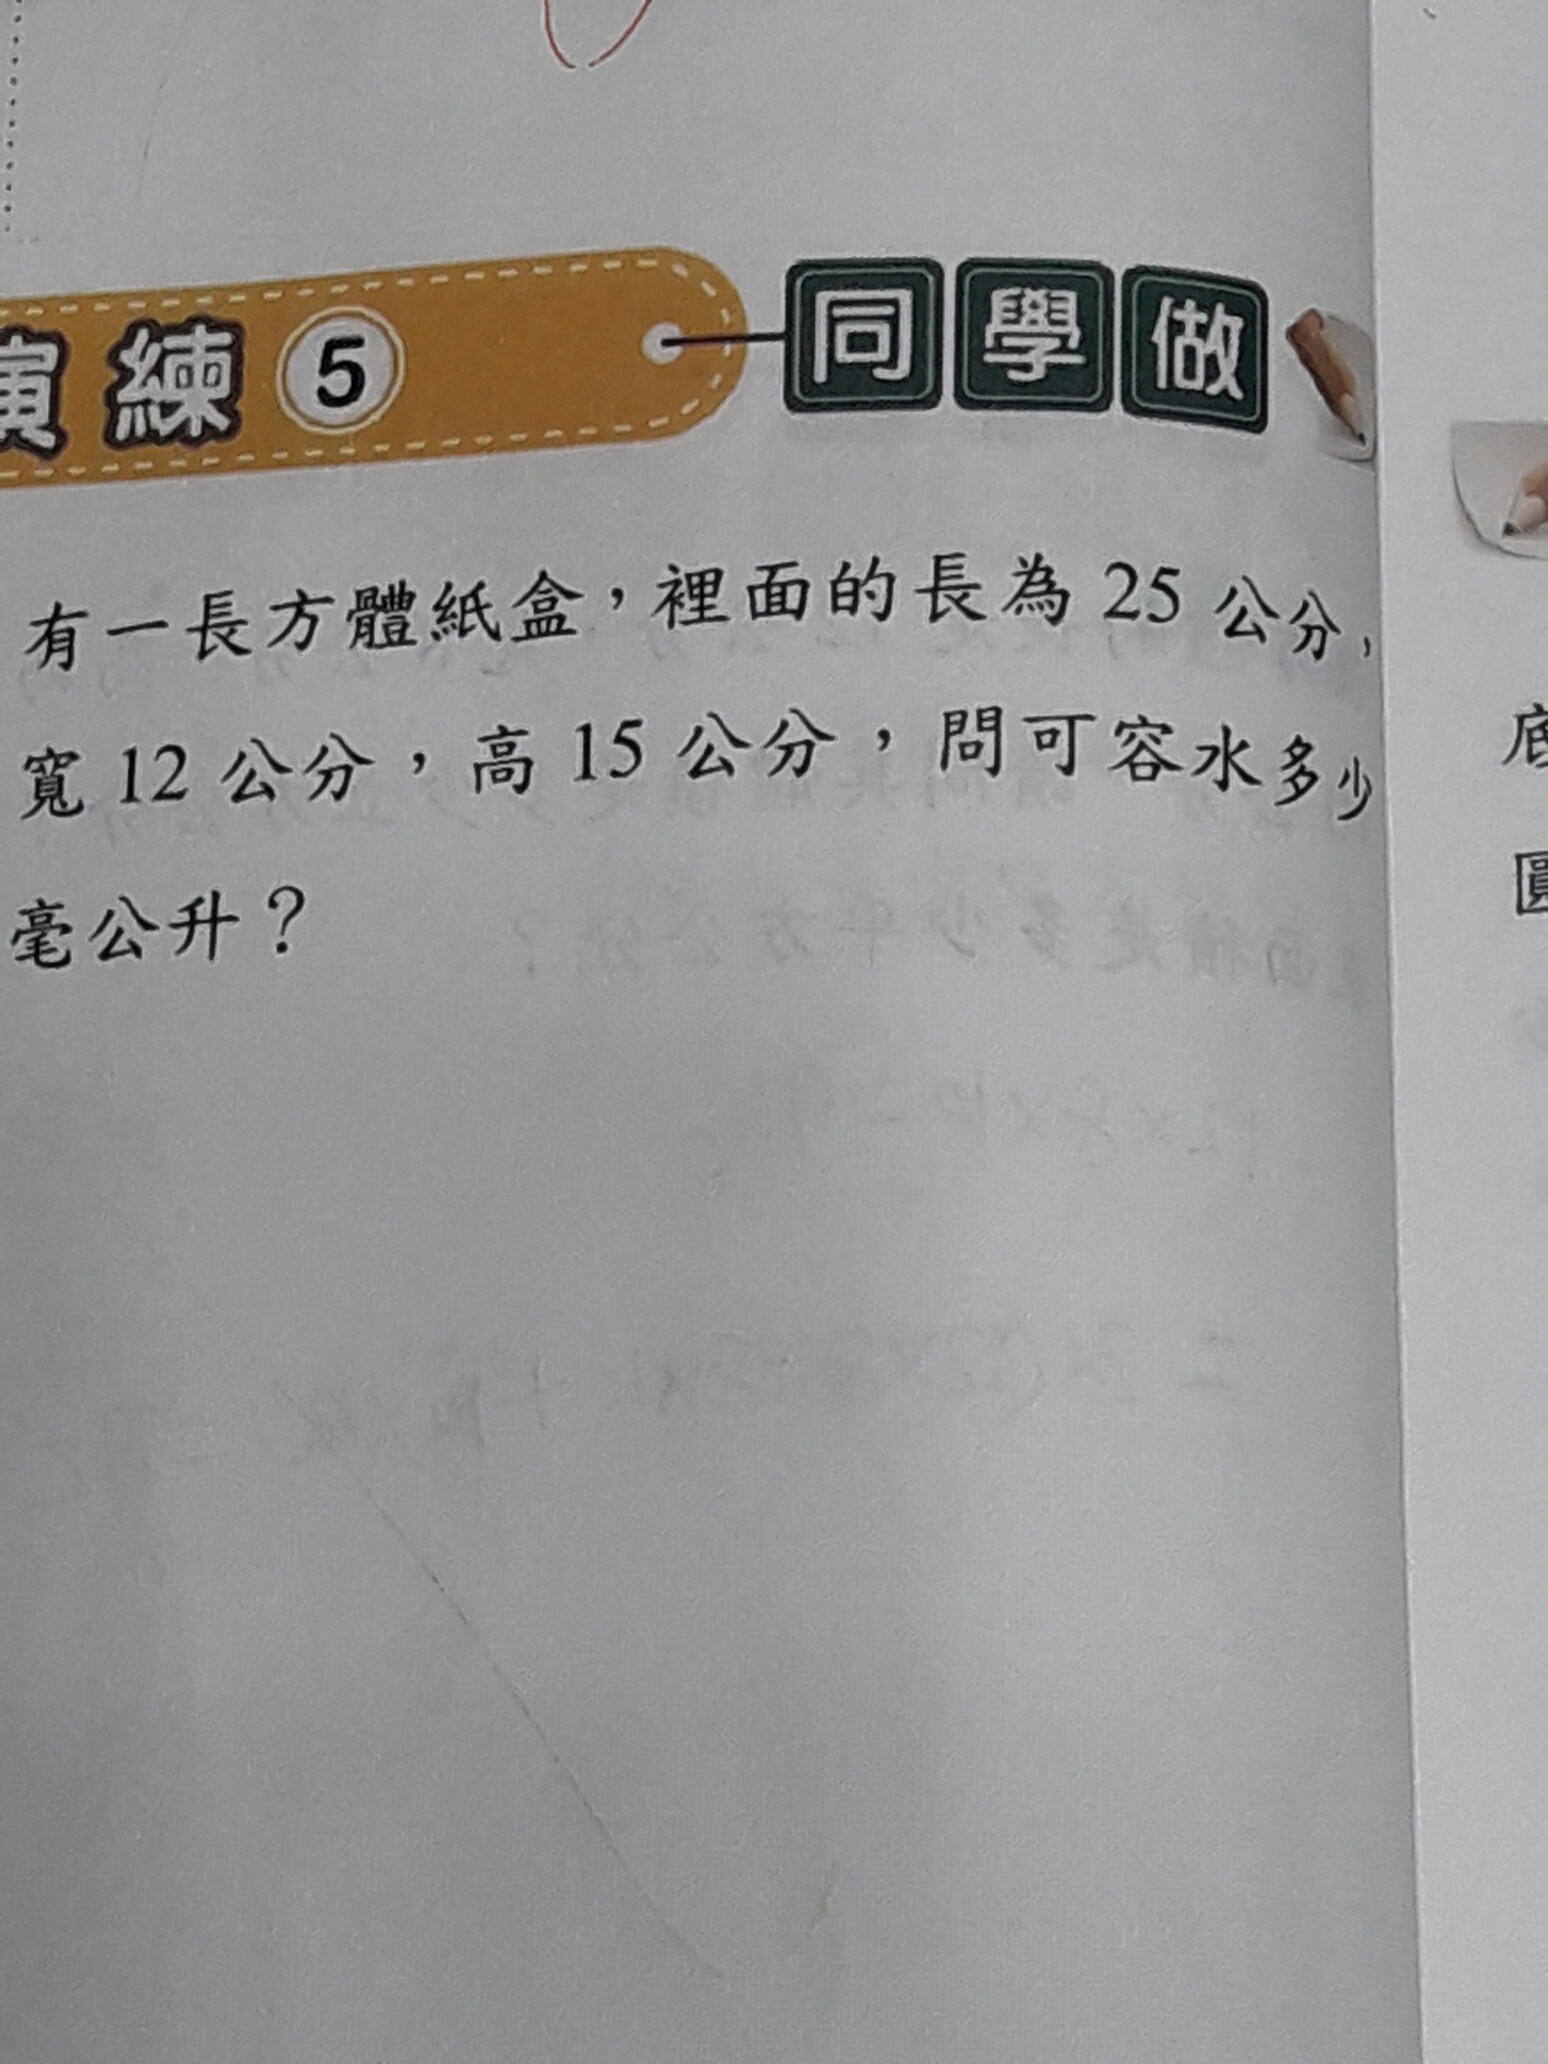 演練5 同學做
有一長方體紙盒，裡面的長為 25 公分，
寬 12 公分，高 15 公分，問可容水多少
毫公升？
底
圓